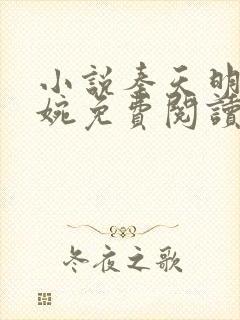 小說奉天明
婉免費閱讀
冬夜之歌